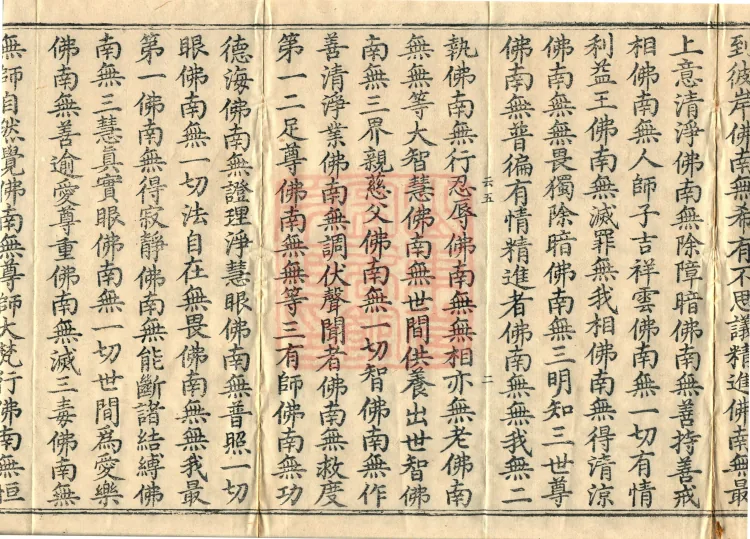 到彼岸佛南無希有不思議精進佛南無最
上意清淨佛南無除障暗佛南無善持善戒
相佛南無人師子吉祥雲佛南無一切有情
利益王佛南無滅罪無我相佛南無得清涼
佛南無無畏獨除暗佛南無三明知三世尊
佛南無普徧有情精進者佛南無無我無二
云五 二
執佛南無行忍辱佛南無無相亦無老佛南
無無等大智慧佛南無世間供養出世智佛
南無三界親慈父佛南無一切智佛南無作
善清淨業佛南無調伏聲聞者佛南無救度
第一二足尊佛南無無等三有師佛南無功
德海佛南無證理淨慧眼佛南無普照一切
眼佛南無一切法自在無畏佛南無無我最
第一佛南無得寂靜佛南無能斷諸結縛佛
南無三慧真實眼佛南無一切世間為愛樂
佛南無善逾愛尊重佛南無滅三毒佛南無
無師自然覺佛南無尊師大梵行佛南無恒